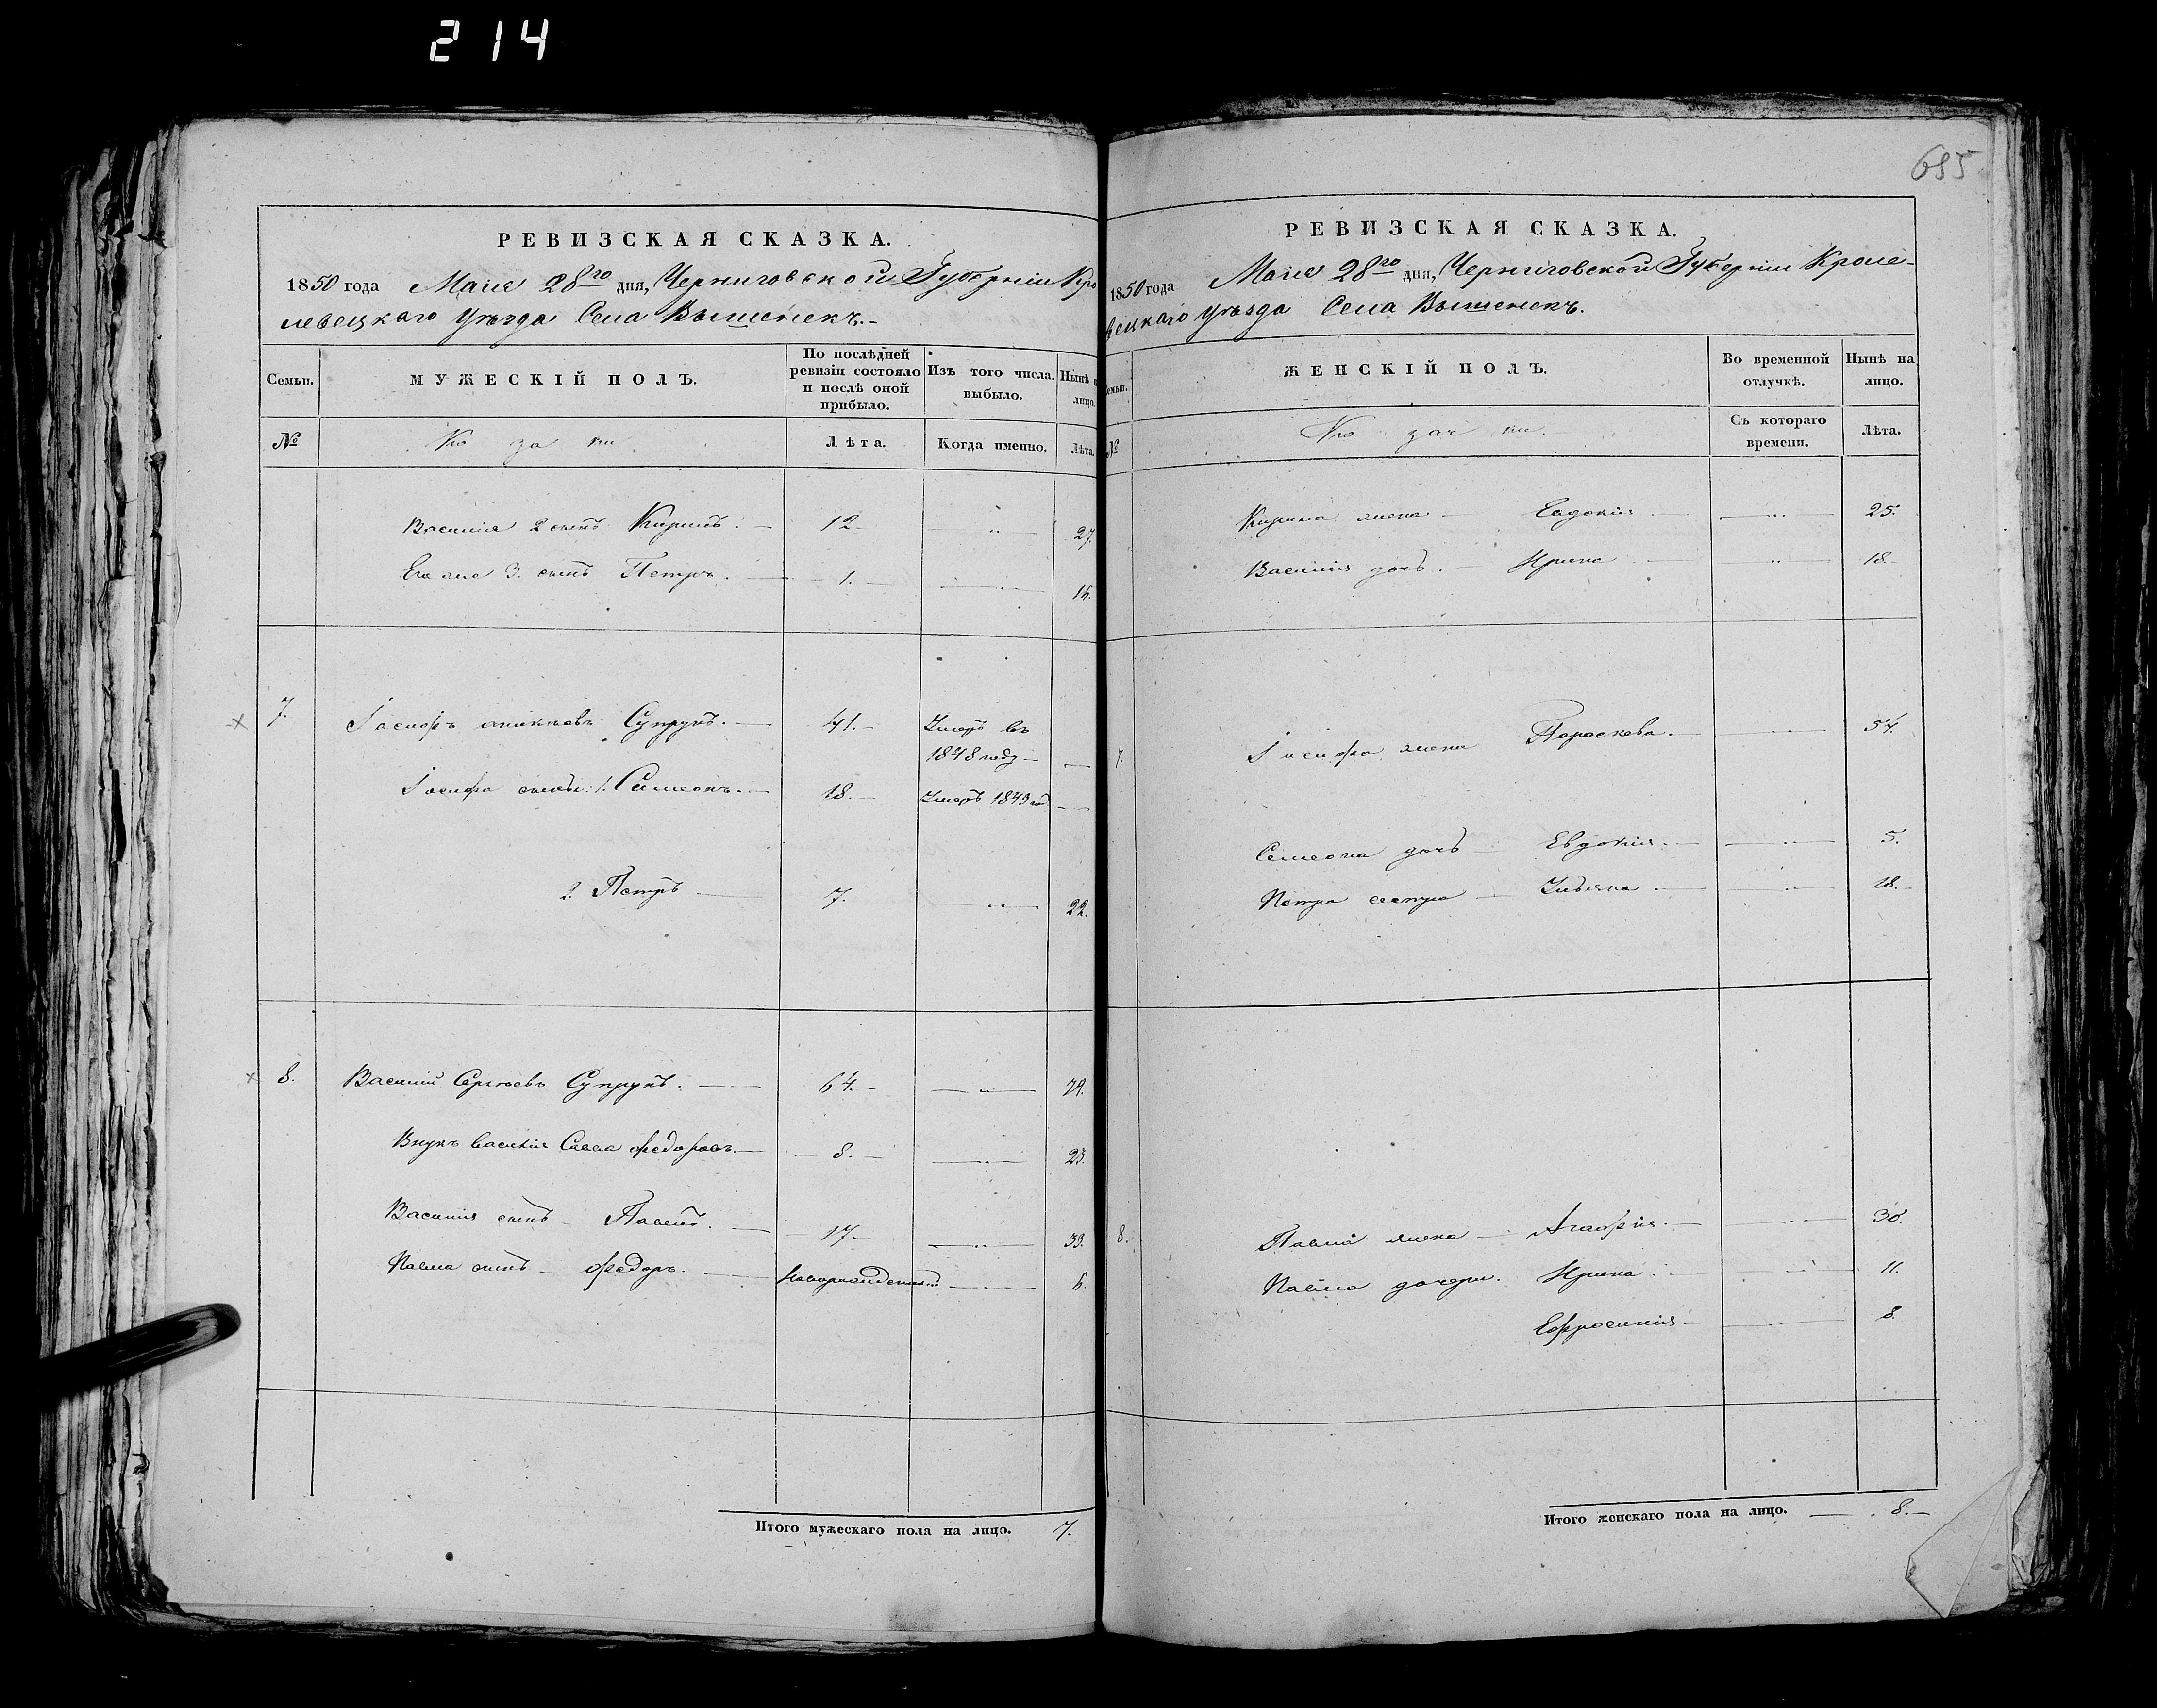 214
РЕВИЗСКАЯ СКАЗКА.
1850 года Маія 28го дня, Черниговской Губерніи Кро
левецкаго уѣзда Села Вишенекъ.-
Семьи.
МУЖЕСКІЙ ПОЛЪ.
По послѣдней ревизіи состояло и послѣ оной прибыло.
Изъ того числа. выбыло.
Нынѣ
лицо.
№
Ко за ки
Лѣта.
Когда именно.
Лѣта.
Василія 2 сынъ Кирилъ. 12 27.
Его же 3. сынъ Петръ. 1. 16.
7. Іосифъ Супрунъ. 41. Умеръ въ
1848 году
Іосифа сынъ: 1. Симеонъ. 18. Умеръ 1849 год
2. Петръ 7. 22.
8. Василій Сергѣевъ Супрунъ. 64. 79.
Внукъ Василія Савва Федоровъ. 8. 23.
Василія сынъ Павелъ. 17 33.
Павла сынъ Федоръ. Новорожденный
Итого мужескаго пола на лицо. 7.
695
РЕВИЗСКАЯ СКАЗКА.
1850 года Маія 28го дня, Черниговской Губерніи Кроле-
вецкаго уѣзда Села Вишенекъ.
емьи.
ЖЕНСКІЙ ПОЛЪ.
Во временной отлучкѣ.
Нынѣ на лицо.
№
Ко зач ки.
Съ котораго времени.
Лѣта.
Кирила жена Евдокія 25.
Василія дочь. Ирина 18.
7. Іосифа жена Параскева. 54.
Семеона дочь Евдокія. 5.
Петра сестра Ульяна. 18.
8. Павла жена Агафія. 30.
Павла дочери. Ирина. 11.
Ефросинія 8.
Итого женскаго пола на лицо. 8.